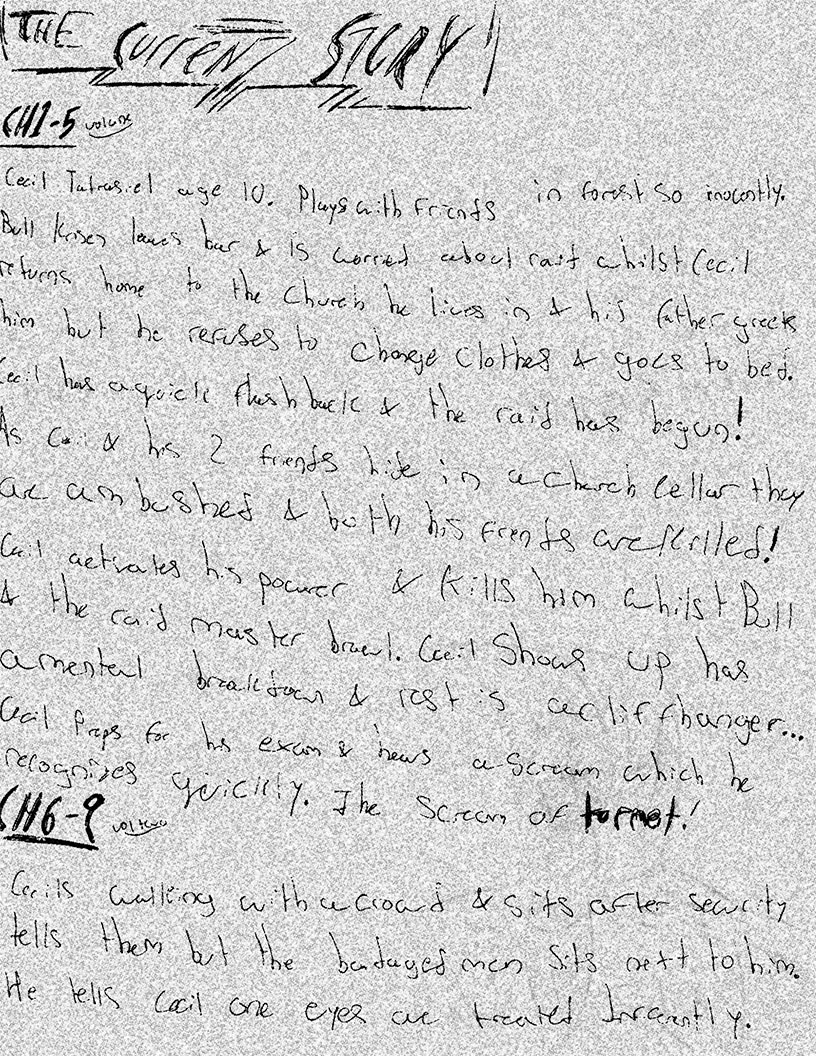 THE Current STORY
CH1-5 volume
Cecil age 10. Plays with Friends in forest so inocently.
Bull leaves bar & is worried about raid whilst Cecil
returns home to the Church he lives in & his father greets
him but he refuses to change clothes & goes to bed.
Cecil has a quick flashback & the raid has begun!
As Cecil & his 2 friends hide in a church cellar they
are ambushed & both his frends are killed!
Cecil activates his power & kills him whilst Bull
& the raid master brawl. Cecil Shows up has
a mental breakdown & rest is a cliffhanger...
Cecil Preps for his exam & hears a scream which he
recognizes quickly. The Scream of tormet!
CH6-9 vol two
Cecils walking with a crowd & sits after security
tells them but the men sits next to him.
He tells Cecil one eyes are treated